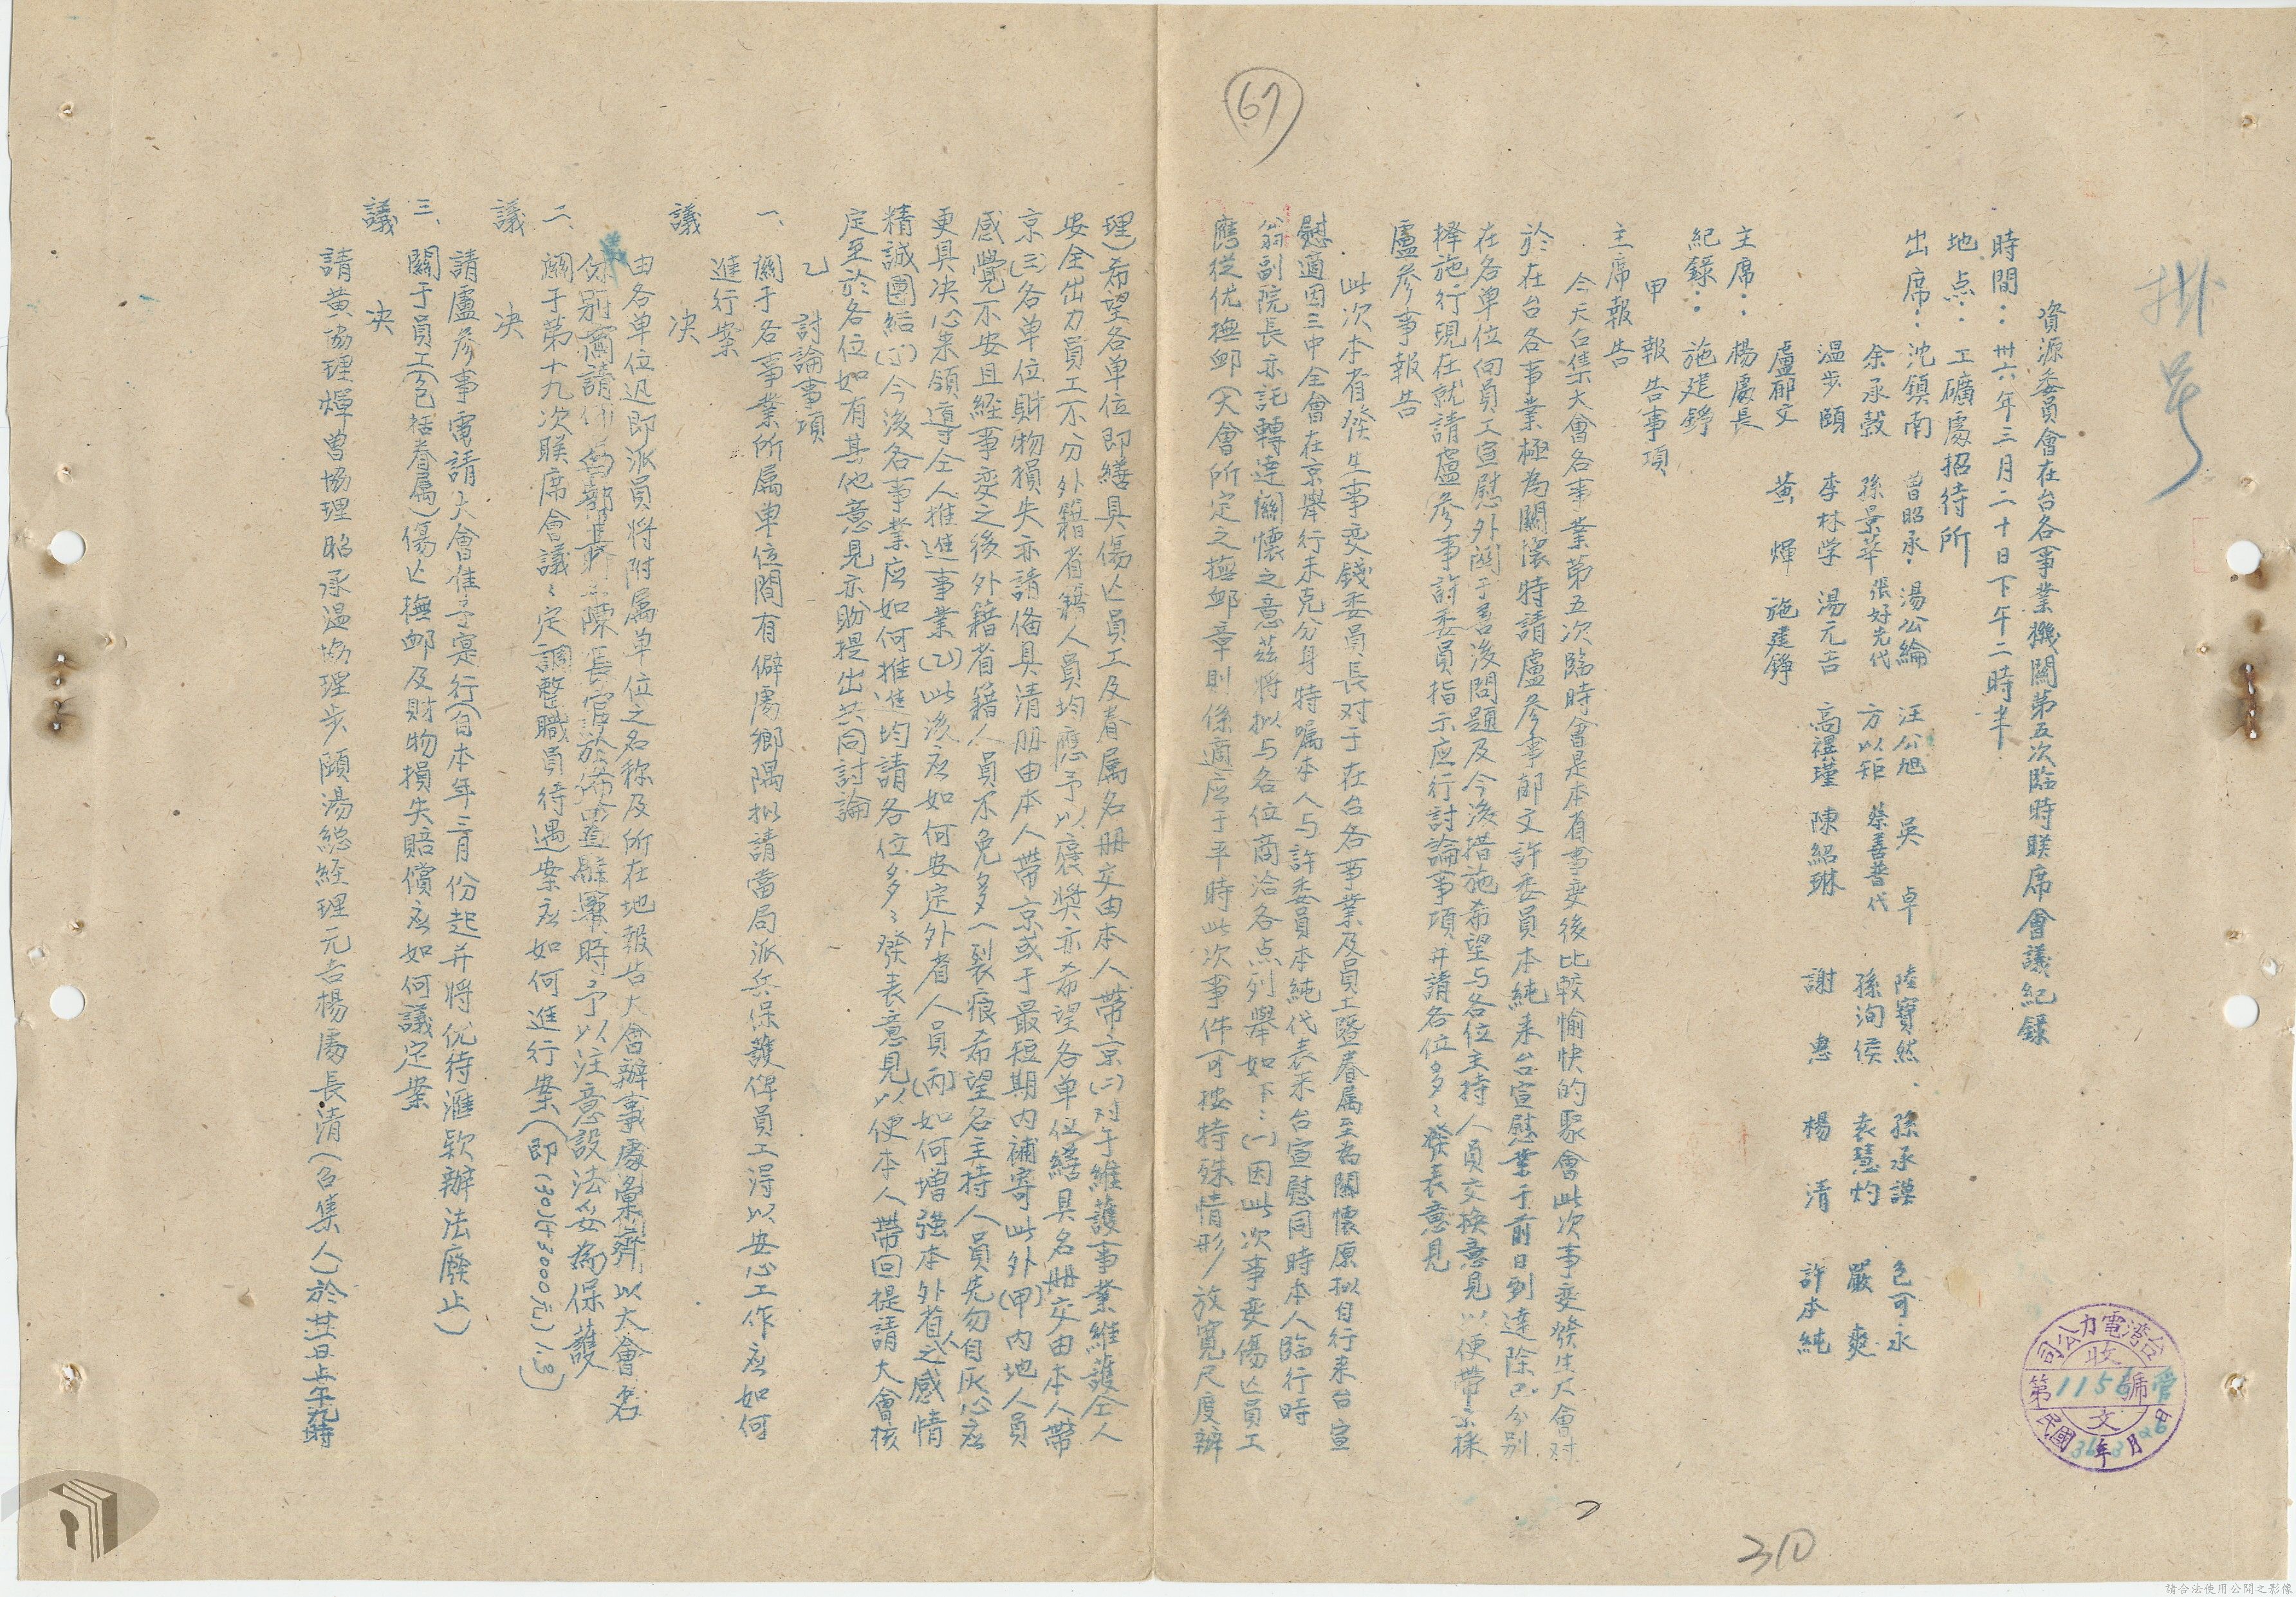 資源委員會在台各事業機關第五次臨時联席會議紀錄
時間：卅六年三月二十日下午二時半
地点：工礦處招待所
出席：沈鎮南 曾昭承 湯公綸 汪公旭 吳卓 陸寶然 孫承謨 包可永
余承毅 孫景華 張好先代 方以矩 蔡善普代 孫洵侯 袁慧灼 嚴爽
温步頤 李林学 湯元吉 高禩瑾 陳紹琳 謝惠 楊清 許本純
盧郁文 黃煇 施建錚
主席：楊處長
紀錄：施建錚
甲 報告事項
主席報告
今天召集大會各事業第五次臨時會是本省事变後比較愉快的聚會此次事变發生大會对
於在台各事業極為關懷特請盧參事郁文許委員本純来台宣慰業于前日到達除已分别
在各单位向員工宣慰外関于善後問題及今後措施希望与各位主持人員交換意見以便帶京採
擇施行現在就請盧參事許委員指示应行討論事項并請各位多々發表意見
盧參事報告
此次本省發生事变錢委員長对于在台各事業及員工暨眷属至為關懷原拟自行来台宣
慰適因三中全會在京舉行未克分身特嘱本人与許委員本純代表来台宣慰同時本人臨行時
翁副院長亦託轉達關懷之意茲將拟与各位商洽各点列舉如下：(一)因此次事变傷亡員工
應從优撫卹(大會所定之撫卹章則係適应于平時此次事件可按特殊情形放寬尺度辦
理)希望各单位即繕具傷亡員工及眷属名册交由本人帶京(二)对于維護事業維護仝人
安全出力員工不分外籍省籍人員均應予以褒奨亦希望各单位繕具名册交由本人帶
京(三)各单位財物損失亦請俻具清册由本人帶京或于最短期内補寄此外(甲)内地人員
感覺不安且経事变之後外籍省籍人員不免多一裂痕希望各主持人員先勿自灰心应
更具决心来領導仝人推進事業(乙)此後应如何安定外省人員(丙)如何增强本外省人之感情
精誠團結(丁)今後各事業应如何推進均請各位多々發表意見以便本人帶回提請大會核
定至於各位如有其他意見亦盼提出共同討論
乙 討論事項
一、關于各事業所属单位間有僻處鄉隅拟請當局派兵保護俾員工得以安心工作应如何
進行案
議决
由各单位迅即派員將附属单位之名称及所在地報告大會辦事處彙齊以大會名
義分别函請
陳長官於佈置駐軍時予以注意設法妥為保護
二、關于第十九次联席會議々定調整職員待遇案应如何進行案(即(30)+3000元)1.3)
議决
請盧參事電請大會准予寔行(自本年三月份起并將优待滙欵辦法廢止)
三、關于員工(包括眷属)傷亡撫卹及財物損失賠償应如何議定案
議决
請黃協理煇曾協理昭承温協理步頤湯総経理元吉楊處長清(召集人)於廿一日上午九時
掛号
67
310
台灣電力公司
收文
第1156號
民國36年3月26日
請合法使用公開之影像